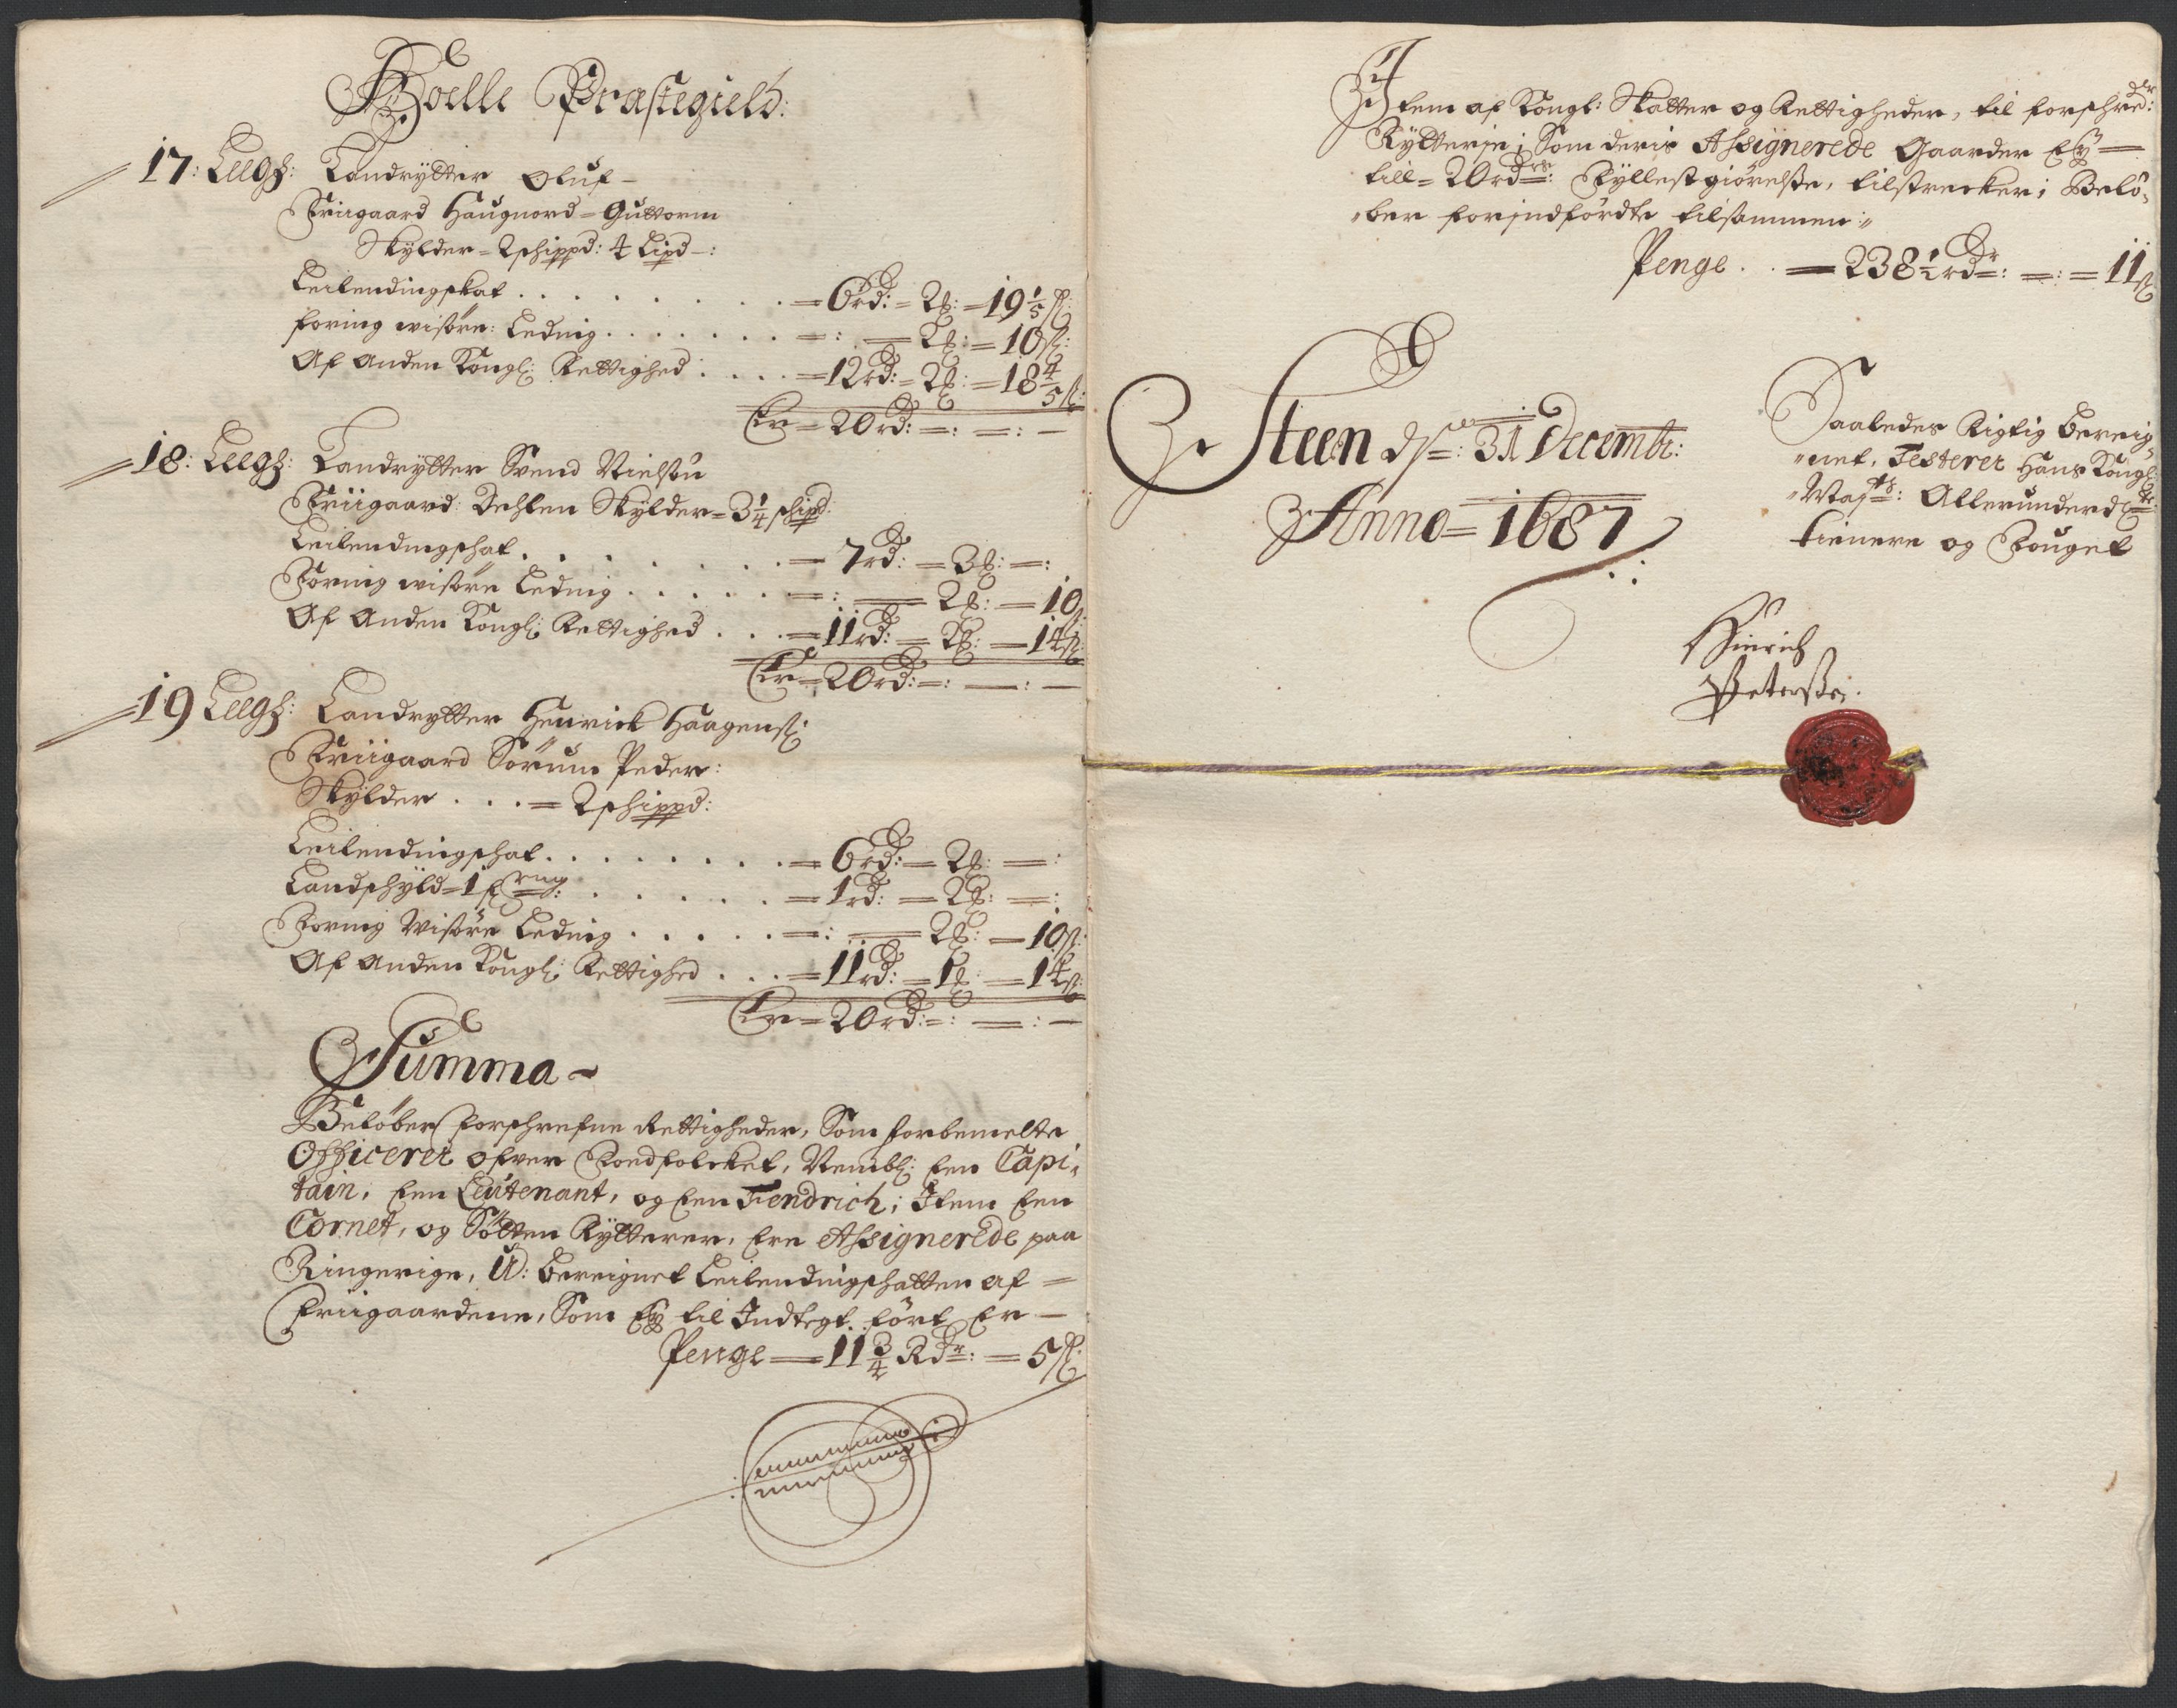 Hoelle Præstegield:
17: Leegh: Landrytter Oluf –
Friigaard Haugnord = Guttorm
Skylder = 2 schippd: 4 Lipd –:
Leilendingskat . . . . . . . . = 6 rd: = 2 ß: = 19 1/5 ß:
foring wisöre: Ledning . . . . . . . =: = 2 ß: = 10 ß:
Af Anden Kongl: Rettighed . . . . = 12 rd: = 2 ß: = 18 4/5 ß:
Er = 20 rd: =: =: –
18: Leegh: Landrytter Svend Nielsön
Friigaard: Dehlen Skylder = 3 1/4 schipd
Leilendingschat . . . . . . . . = 7 rd: = 3 ß: =:
Foring wisöre Ledning . . . . . . =: = 2 ß: = 10 ß
Af Anden Kongl: Rettighed . . . = 11 rd: = 2 ß: = 14 ß:
Er = 20 rd: =: –: –
19 Leegh: Landrytter Henrick Haagens:
Friigaard Sörum Peder:
Skylder . . . = 2 schippd:
Leilendingschat . . . . . . . . = 6 rd: = 2 ß: =:
Landschyld = 1 rug: . . . . . . = 1 rd: = 2 ß: =:
Foring Wisöre Ledning . . . . . =: = 2 ß: = 10 ß:
Af Anden Kongl: Rettighed . . . = 11 rd: = 1 ß: = 14 ß:
Er = 20 rd: =: –: –
Summa –
Belöber forschrefne Rettigheder, Som forbemelte
Officerer ofver Foedfolcket, Nembl: Een Capi-
tain, Een Leutenant, og Een Fendrich; Item Een
Cornet, og Sötten Rytterer, Ere Assignerede paa
Ringerige, U: bereignet Leilendingschatten af =
friigaardene, Som Ey til Indtegt fört Er –
Penge = 11 3/4 Rdr: = 5 ß:
Item af Kongl: Skatter og Rettigheder, til forschrede:
Rytterje; Som deris Assignerede Gaarder Ey =
till = 20 rdrs: Fyllestgiörelsse, tilstrecker; Belö-
ber forindfördte tilsammen:
Penge . . = 238 1/2 rdr: =: = 11 ß
Steen d: 31 Decembr:
Anno = 1687
Saaledes Rigtig bereig-
net, Testerer Hans Kongl:
Majts: Allerunderd:
tienere og Fouget
Hinrich
Peterssen.